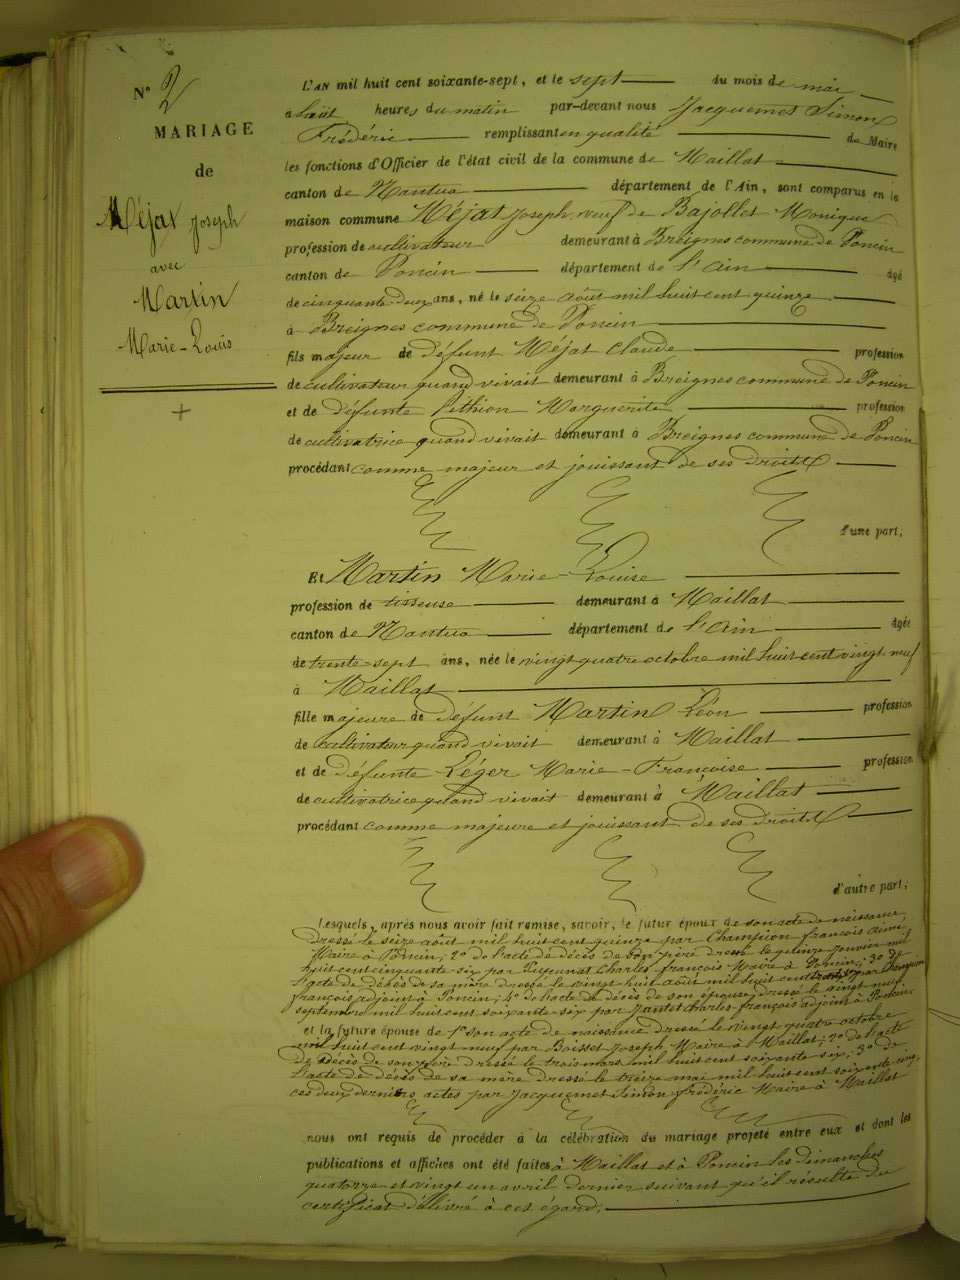 N° 2
MARIAGE
de
Méjat Joseph
avec
Martin
Marie-Louis
L'AN mil huit cent soixante-sept, et le sept du mois de mai
à huit heures du matin par-devant nous Jacquemet Simon
Frédéric remplissant en qualité de Maire
les fonctions d'Officier de l'état civil de la commune de Maillat
canton de Nantua département de l'Ain, sont comparus en la
maison commune Méjat Joseph veuf de Bajollet Monique
profession de cultivateur demeurant à Breignes commune de Poncin
canton de Poncin département de l'Ain âgé
de cinquante-deux ans, né le seize août mil huit cent quinze
à Breignes commune de Poncin
fils majeur de défunt Méjat Claude profession
de cultivateur quand vivait demeurant à Breignes commune de Poncin
et de défunte Pethion Marguerite profession
de cultivatrice quand vivait demeurant à Breignes commune de Poncin
procédant comme majeur et jouissant de ses droits
d'une part,
Et Martin Marie-Louise
profession de tisseuse demeurant à Maillat
canton de Nantua département de l'Ain âgée
de trente-sept ans, née le vingt quatre octobre mil huit cent vingt-neuf
à Maillat
fille majeure de défunt Martin Léon profession
de cultivateur quand vivait demeurant à Maillat
et de défunte Léger Marie-Françoise profession
de cultivatrice quand vivait demeurant à Maillat
procédant comme majeure et jouissant de ses droits
d'autre part;
Lesquels, après nous avoir fait remise, savoir, le futur époux de son acte de naissance
dressé le seize août mil huit cent quinze par Champion françois Aimé
Maire à Poncin; 2° de l'acte de décès de son père dressé le quinze janvier mil
huit cent cinquante six par Charles françois Maire à Poncin; 3° de
l'acte de décès de sa mère dressé le vingt huit août mil huit cent par Champion
françois adjoint à Poncin; 4° de l'acte de décès de son épouse dressé le vingt neuf
septembre mil huit cent soixante-six par Jantet Charles-françois adjoint à Poncin.
et la future épouse de 1° son acte de naissance dressé le vingt quatre octobre
mil huit cent vingt neuf par Boisset Joseph Maire à Maillat; 2° de l'acte
de décès de son père dressé le trois mars mil huit cent soixante six; 3° de
l'acte de décès de sa mère dressé le treize mai mil huit cent soixante cinq,
ces deux derniers actes par Jacquemet Simon frédéric Maire à Maillat
nous ont requis de procéder à la célébration du mariage projeté entre eux et dont les
publications et affiches ont été faites à Maillat et à Poncin les dimanches
quatorze et vingt un avril dernier suivant qu'il résulte du
certificat délivré à cet égard;